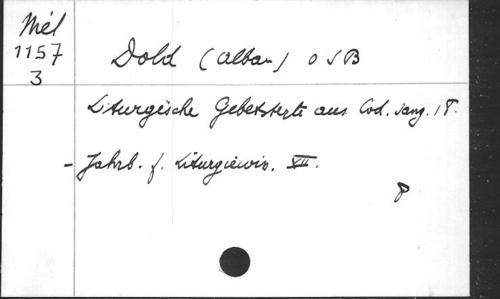 Mél
1157
3
Dold (Alban) O S B
Liturgische Gebetstexte aus Cod. Sang. 18.
- Jahrb. f. Liturgiewiss. VII.
8